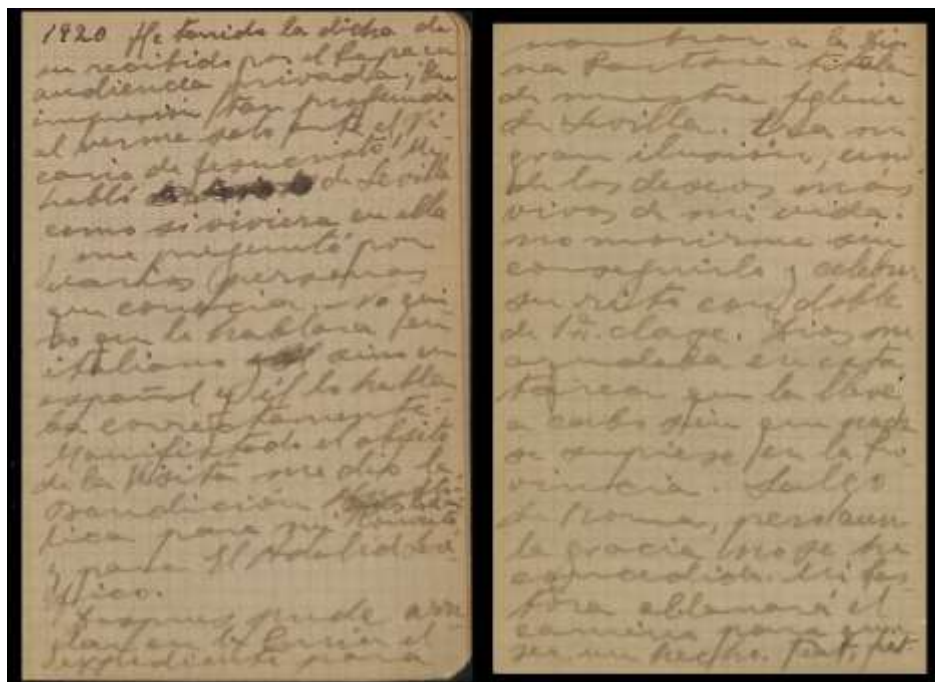 1920 He tenido la dicha de
ser recibido por el Papa en
audiencia privada; qué
impresión tan profunda
al verme solo ante el Vi
cario de Jesucristo! Me
habló de Sevilla
como si viviera en ella
y me preguntó por
varias personas
que conocía. No qui
so que le hablara en
italiano sino en
español y él lo habla
ba correctamente.
Manifestado el objeto
de la visita me dio la
Bendición Apostó
lica para mi
y para El Adalid Será
fico.
Después pude arre
glar en la Curia el
expediente para
nombrar a la Divi
na Pastora titular
de nuestra Iglesia
de Sevilla. Era mi
gran ilusión, uno
de los deseos más
vivos de mi vida:
no morirme sin
conseguirlo y celebrar
su rito con doble
de 1ª clase. Dios me
ayudaba en esta
tarea que la llevé
a cabo sin que nada
se supiese en la Pro
vincia. Salgo
de Roma, pero aun
la gracia no se ha
concedido. Mi Pas
tora allanará el
camino para que
sea un hecho. fiat, fiat.